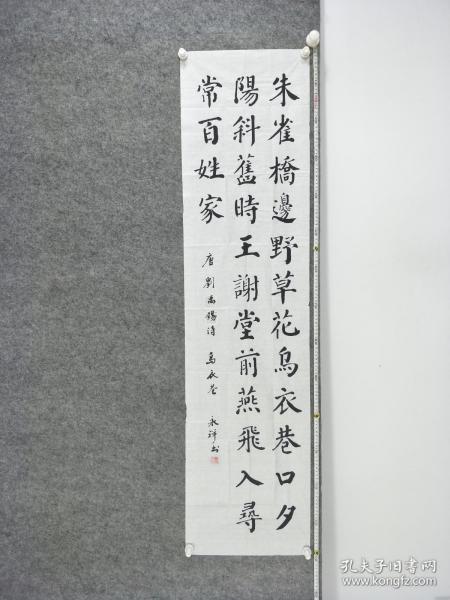 朱雀橋邊野草花烏衣巷口夕
陽斜舊時王謝堂前燕飛入尋
常百姓家
唐劉禹錫詩 烏衣巷 永祥书
孔夫子旧书网
www.kongfz.com